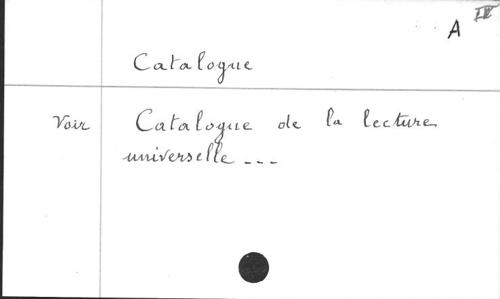 IV
A
Catalogue
Voir Catalogue de la lecture
universelle ---